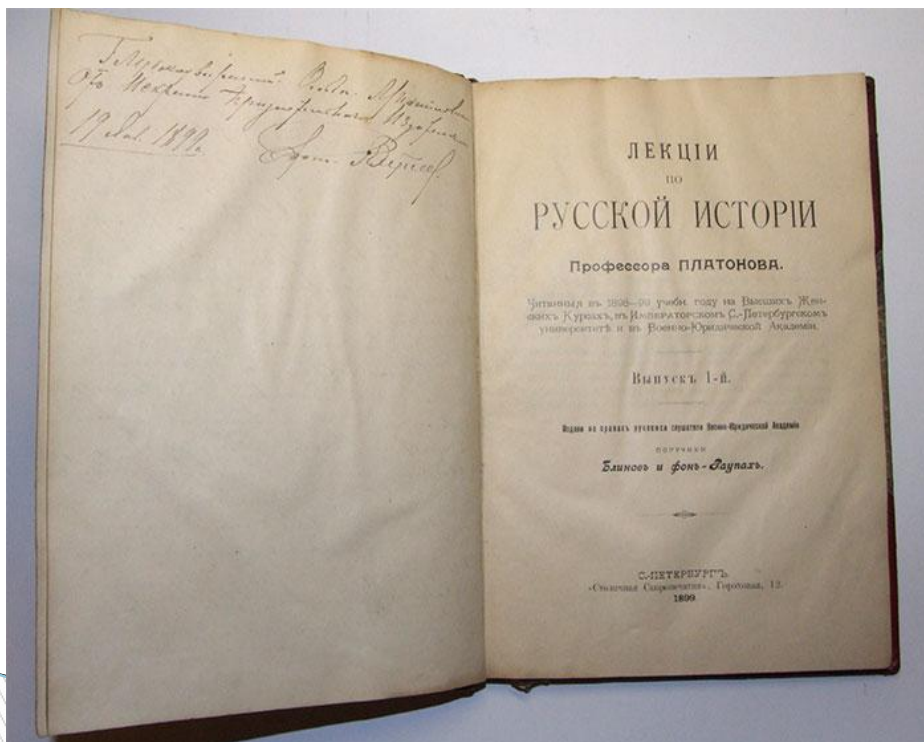 19 1899.
ЛЕКЦІИ
ПО
РУССКОЙ ИСТОРІИ
Профессора ПЛАТОНОВА.
Читанныя въ 1898—99 учебн. году на Высшихъ Жен-
скихъ Курсахъ, въ Императорскомъ С.-Петербургскомъ
университетѣ и въ Военно-Юридической Академіи.
Выпускъ 1-й.
Издали на правахъ рукописи слушатели Военно-Юридической Академіи
ПОРУЧИКИ
Блиновъ и фонъ-Раупахъ.
С.-ПЕТЕРБУРГЪ.
«Столичная Скоропечатня», Гороховая, 12.
1899